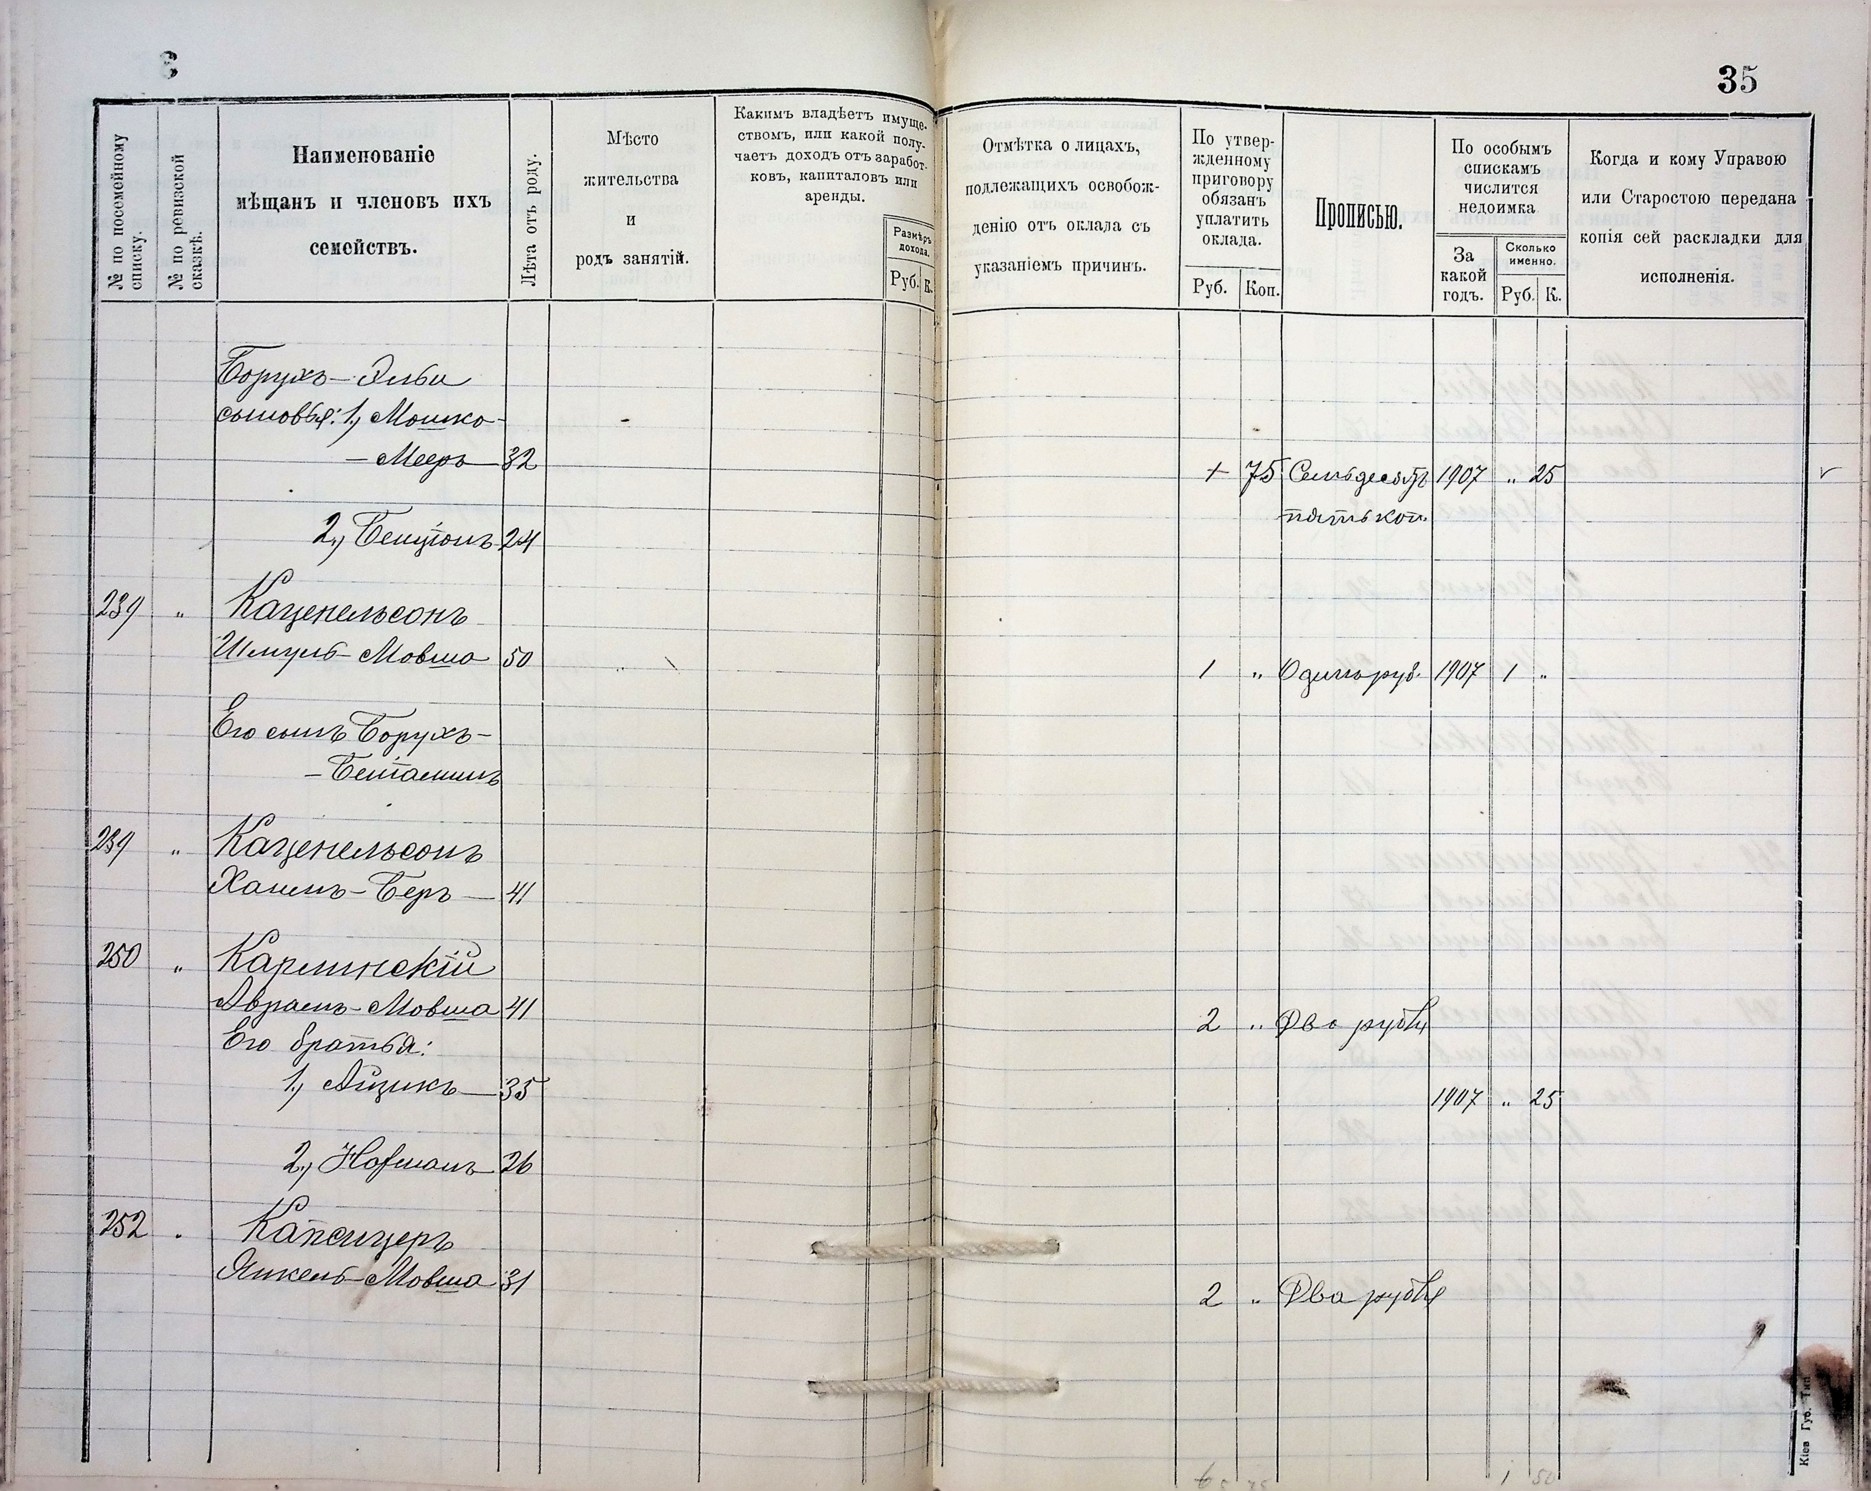 35
№ по посемейному списку.
№ по ревизской сказкѣ.
Наименованіе
мѣщанъ и членовъ ихъ
семействъ.
Лѣта отъ роду.
Мѣсто
жительства
и
родъ занятій.
Какимъ владѣетъ имуще-
ствомъ, или какой полу-
чаетъ доходъ отъ заработ-
ковъ, капиталовъ или
аренды.
Размѣръ
дохода.
Руб. К.
Отмѣтка о лицахъ,
подлежащихъ освобож-
денію отъ оклада съ
указаніемъ причинъ.
По утвер-
жденному
приговору
обязанъ
уплатить
оклада.
Руб. Коп.
Прописью.
По особымъ
спискамъ
числится
недоимка
За
какой
годъ.
Сколько
именно.
Руб. К.
Когда и кому Управою
или Старостою передана
копія сей раскладки для
исполненія.
Борухъ-Эльби
сыновья: 1, Мошко-
-Мееръ 32 75 Семьдесятъ 1907 " 25
пять коп.
2, Бенціонъ 24
239 " Каценельсонъ
Шмуль-Мовша 50 1 " Одинъ руб. 1907 1 "
Его сынъ Борухъ-
-Бенiаминъ
239 " Каценельсонъ
Хаимъ-Беръ 41
250 " Карлинскій
Аврамъ-Мовша 41 2 " Два рубля
Его братья:
1, Айзикъ 35 1907 " 25
2, Нафманъ 26
252 " Капсицеръ
Янкель-Мовша 31 2 " Два рубля
1 50
Кіев Губ. Тип